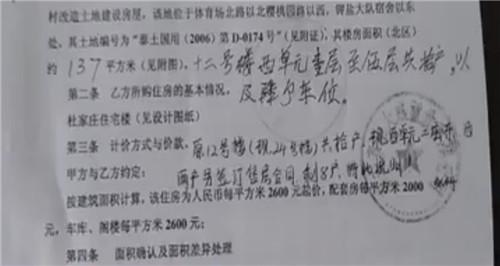 村改造土地建设房屋，该地位于体育场北路以北樱桃园路以西，钾盐大队宿舍以东
处，其土地编号为“泰土国用（2006）第 D-0174 号”（见附证），其楼房面积（北区）
约 137 平方米（见附图），十二号楼西单元壹层至伍层共拾户，以
第二条 乙方所购住房的基本情况，及 车位。
杜家庄住宅楼（见设计图纸）
第三条 计价方式与价款，原12号楼(现24号楼)共拾户，现西单元二层东 西
甲方与乙方约定： 两户另签订售房合同，剩8户，特此说明
按建筑面积计算，该住房为人民币每平方米 2600 元起价，配套房每平方米 2000
元，车库、阁楼每平方米 2600 元；
第四条 面积确认及面积差异处理